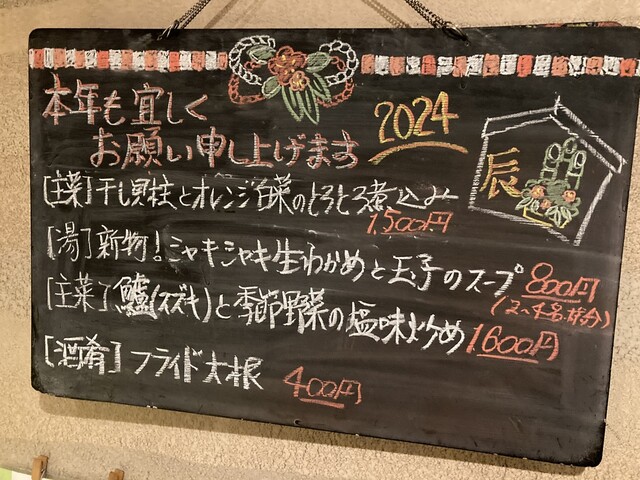 本年も宜しく
お願い申し上げます
2024
辰
[主菜]干し貝柱とオレンジ白菜のとろとろ煮込み
1500円
[湯]新物!シャキシャキ生わかめと玉子のスープ 800円
(2〜4名様分)
[主菜]鱸(スズキ)と季節野菜の塩味炒め 1600円
[酒肴]フライド大根 400円